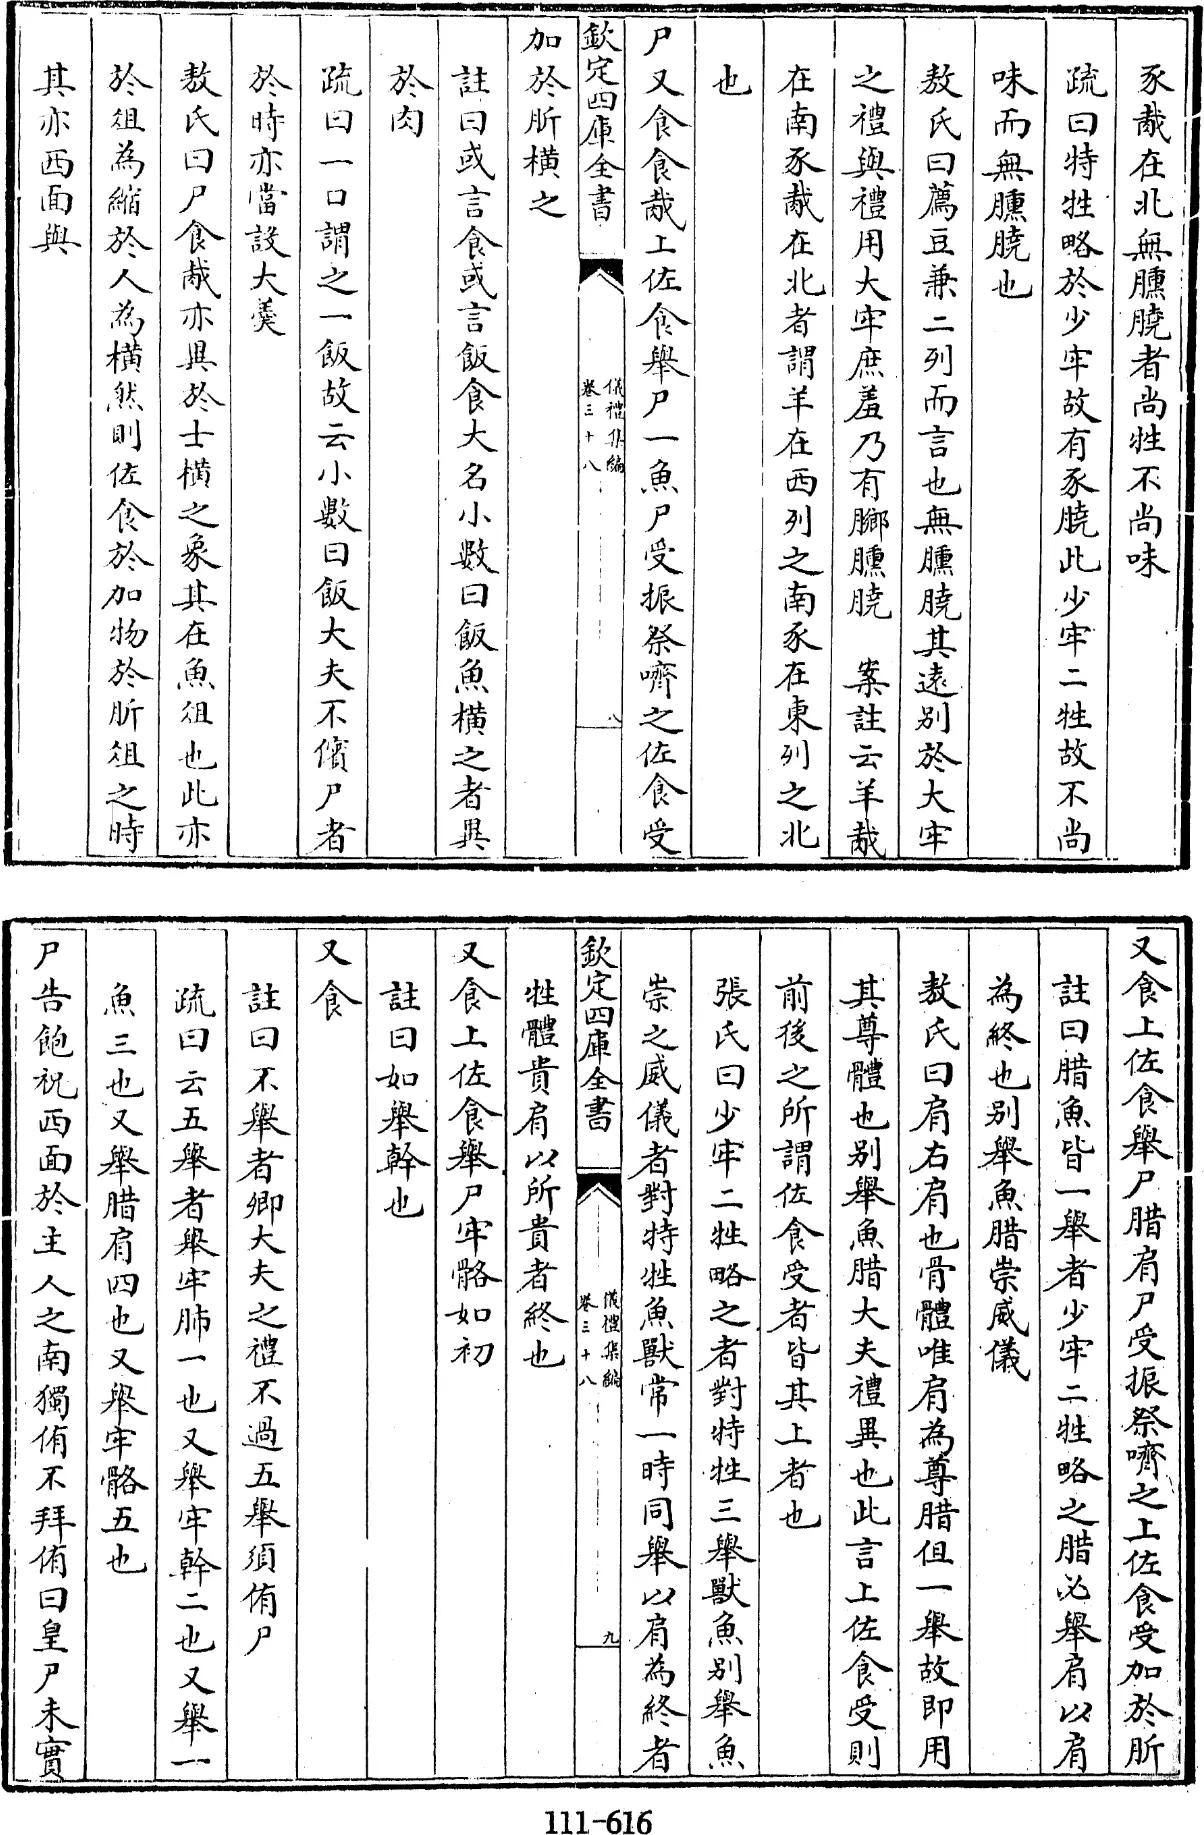 豕胾在北無臐膮者尚牲不尚味
疏曰特牲略於少牢故有豕膮此少牢二牲故不尚
味而無臐膮也
敖氏曰薦豆兼二列而言也無臐膮其遠别於大牢
之禮與禮用大牢庶羞乃有膷臐膮　案註云羊胾
在南豕胾在北者謂羊在西列之南豕在東列之北
也
尸又食食胾上佐食舉尸一魚尸受振祭嚌之佐食受
欽定四庫全書
儀禮集編
卷三十八
八
加於肵橫之
註曰或言食或言飯食大名小數曰飯魚橫之者異
於肉
疏曰一口謂之一飯故云小數曰飯大夫不儐尸者
於時亦當設大羹
敖氏曰尸食胾亦異於士橫之象其在魚俎也此亦
於俎為縮於人為橫然則佐食於加物於肵俎之時
其亦西面與
又食上佐食舉尸腊肩尸受振祭嚌之上佐食受加於肵
註曰腊魚皆一舉者少牢二牲略之腊必舉肩以肩
為終也别舉魚腊崇威儀
敖氏曰肩右肩也骨體唯肩為尊腊但一舉故即用
其尊體也别舉魚腊大夫禮異也此言上佐食受則
前後之所謂佐食受者皆其上者也
張氏曰少牢二牲略之者對特牲三舉獸魚别舉魚
崇之威儀者對特牲魚獸常一時同舉以肩為終者
欽定四庫全書
儀禮集編
卷三十八
九
牲體貴肩以所貴者終也
又食上佐食舉尸牢骼如初
註曰如舉幹也
又食
註曰不舉者卿大夫之禮不過五舉須侑尸
疏曰云五舉者舉牢肺一也又舉牢幹二也又舉一
魚三也又舉腊肩四也又舉牢骼五也
尸告飽祝西面於主人之南獨侑不拜侑曰皇尸未實
111-616